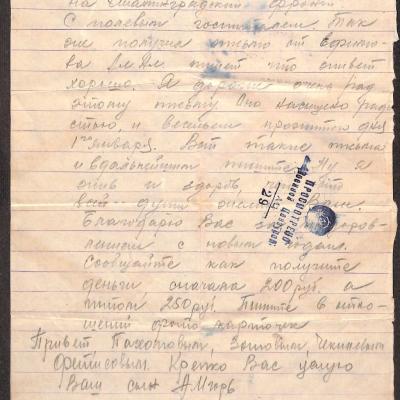 на Сталинградский фронт
с полевым госпиталем. Так
же получил письмо от
пишет что живет
хорошо. Я дорогие очень рад
этому письму Оно насыщено радо
стью, и весельем прожитого дня
1го января. Вот такие письма
и в дальнейшем пишите. Ну я
жив и здоров,
всей души Вам.
Благодарю Вас за поздрав-
ления с новым годом.
Сообщайте как получите
деньги сначала 200 руб. а
потом 250 руб. Пишите в отно-
шении фото карточек
Привет Пахотовым, Зотовым,
Фетисовым. Крепко Вас целую
Ваш сын Игорь
ПРОСМОТРЕНО
Военной Цензурой
29